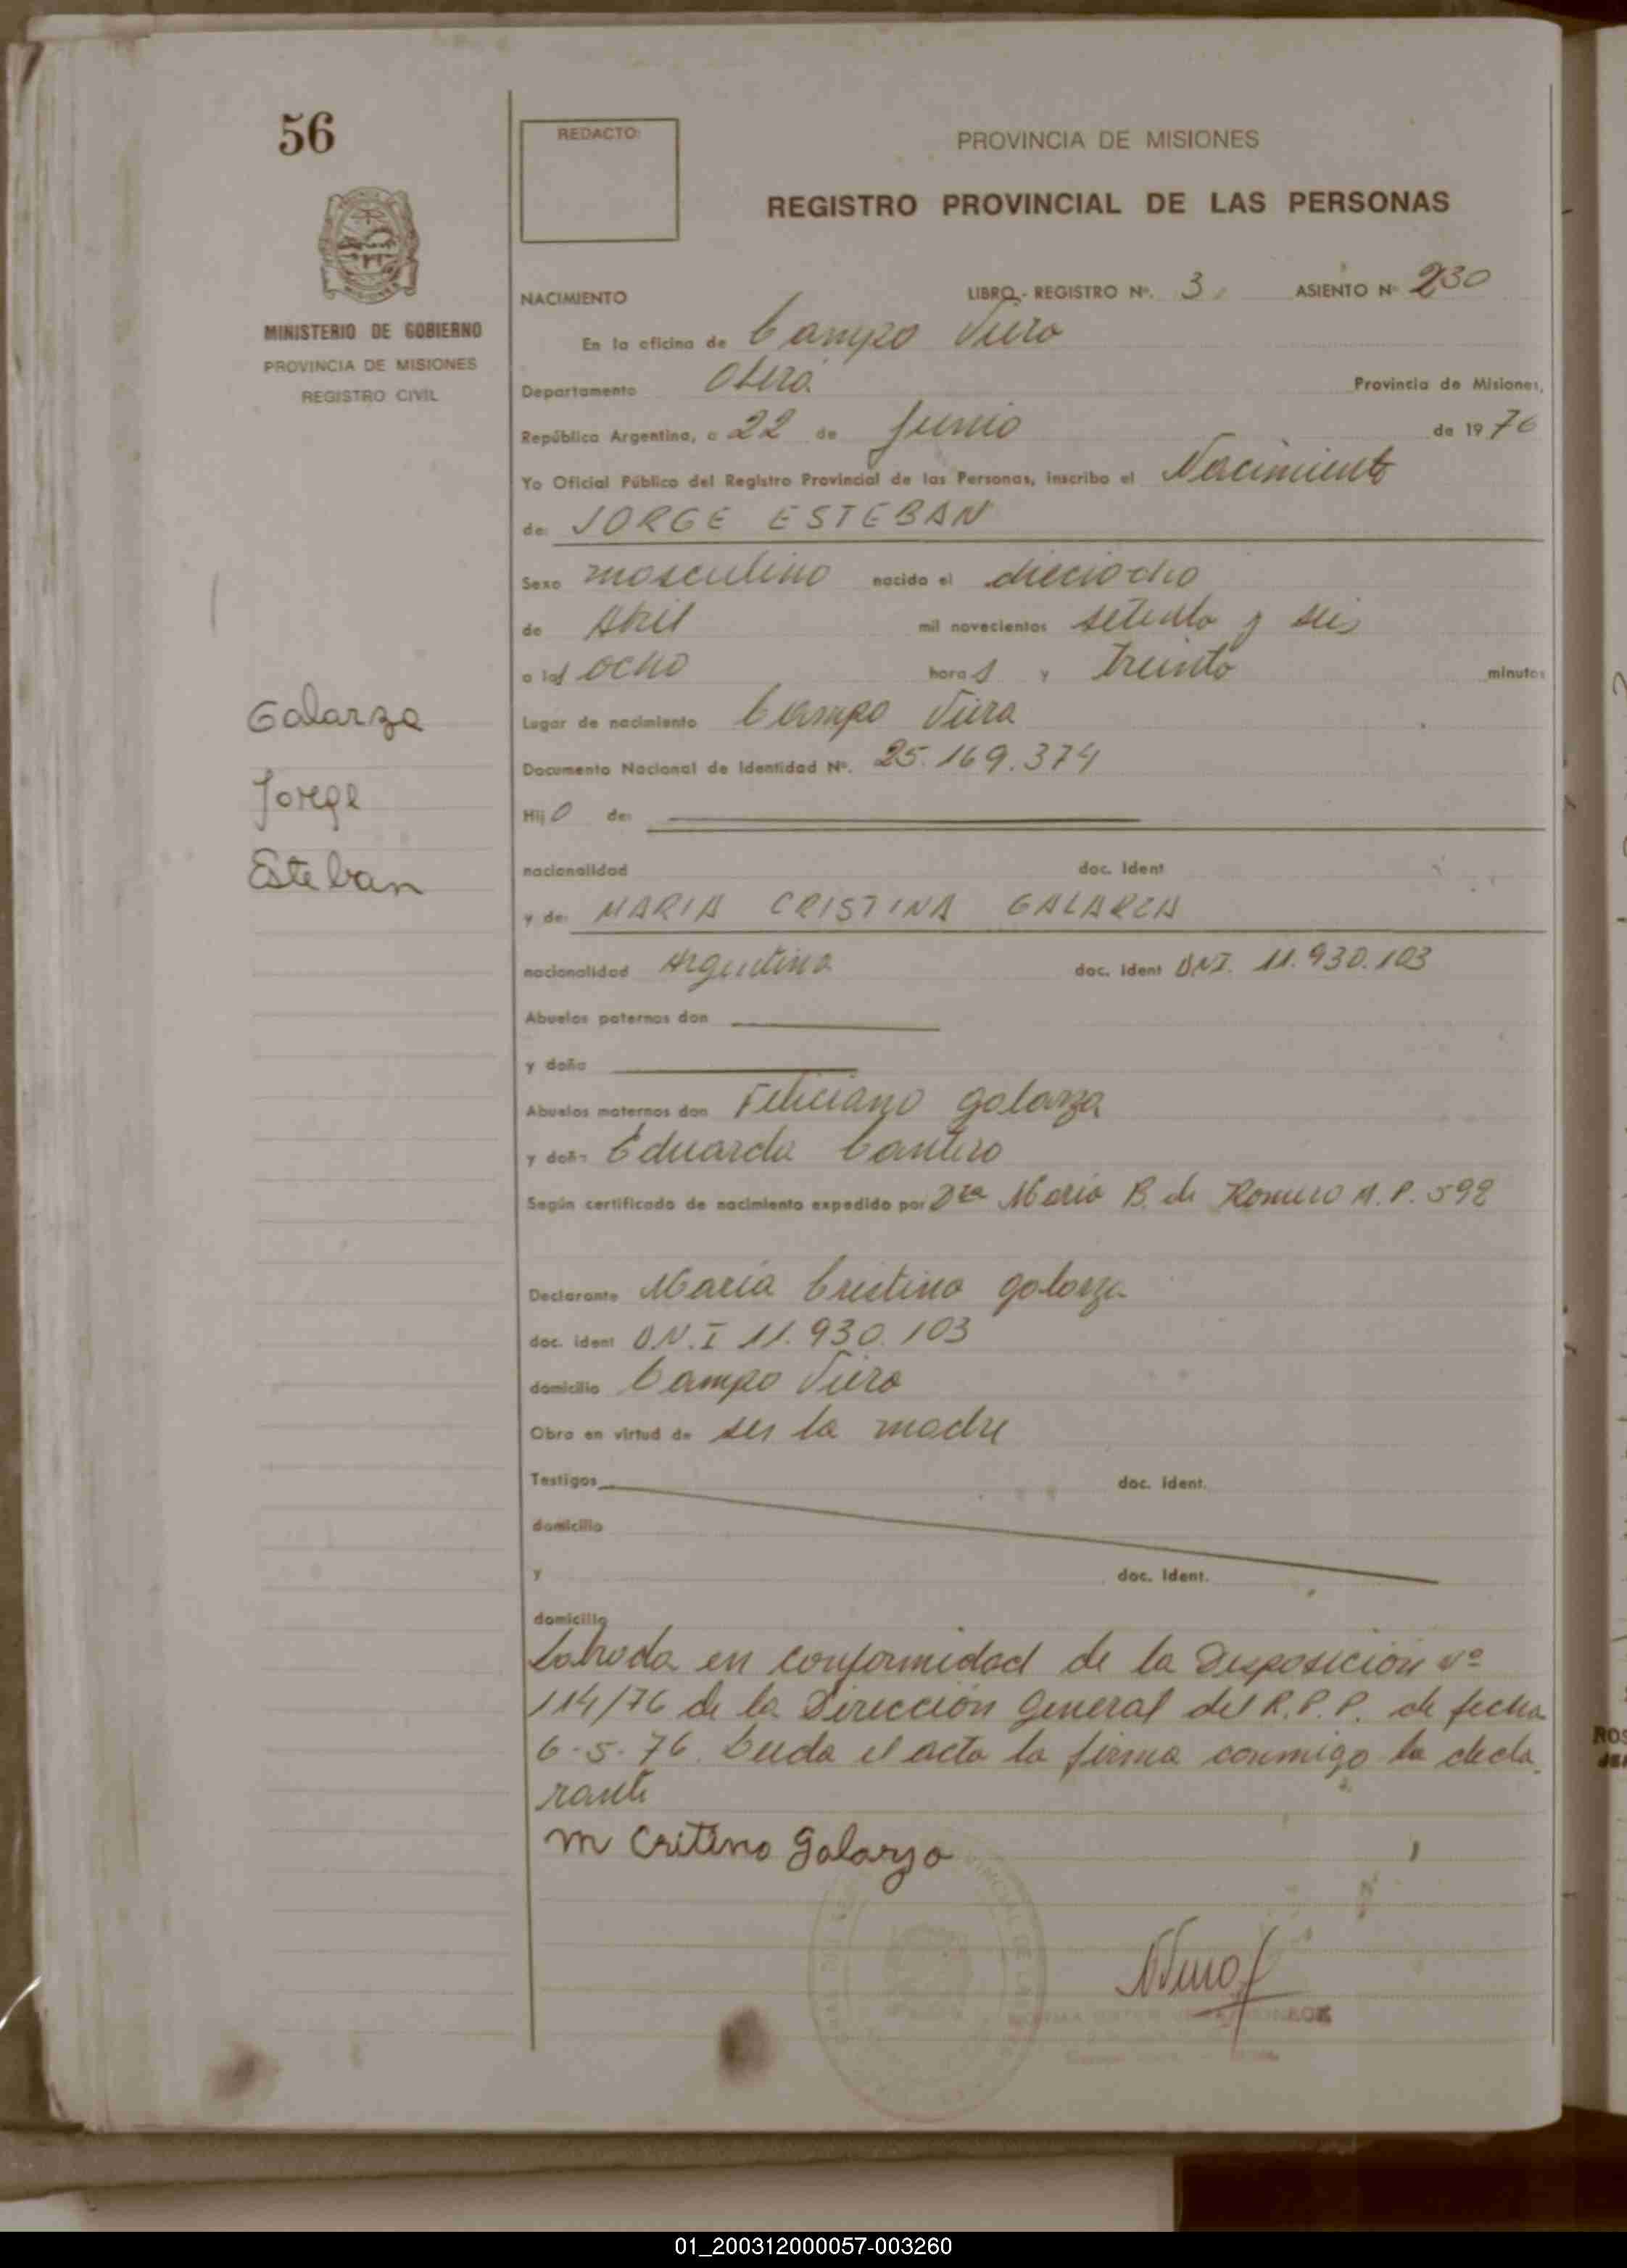 56
REDACTO:
PROVINCIA DE MISIONES
REGISTRO PROVINCIAL DE LAS PERSONAS
MINISTERIO DE GOBIERNO
PROVINCIA DE MISIONES
REGISTRO CIVIL
NACIMIENTO LIBRO - REGISTRO Nº. 3 ASIENTO Nº 230
En la oficina de Campo Viera
Departamento Oberá Provincia de Misiones,
República Argentina, a 22 de Junio de 1976
Yo Oficial Público del Registro Provincial de las Personas, inscribo el Nacimiento
de: JORGE ESTEBAN
Sexo masculino nacido el dieciocho
de Abril mil novecientos setenta y seis
a las ocho horas y treinta minutos
Lugar de nacimiento Campo Viera
Documento Nacional de Identidad Nº. 25.169.374
Galarza
Jorge
Esteban
Hijo de:
nacionalidad doc. Ident
y de: MARIA CRISTINA GALARZA
nacionalidad Argentina doc. Ident DNI. 11.930.103
Abuelos paternos don
y doña
Abuelos maternos don Feliciano Galarza
y doña Eduarda Cantero
Según certificado de nacimiento expedido por Dra Maria B. de Romero M.P. 592
Declarante Maria Cristina Galarza
doc. ident D.N.I 11.930.103
domicilio Campo Viera
Obra en virtud de ser la madre
Testigos doc. Ident.
domicilio
y doc. Ident.
domicilio
Labrada en conformidad de la Disposición Nº
114/76 de la Dirección General del R.P.P. de fecha
6-5-76. Leida el acta la firma conmigo la decla
rante
M Critina Galarza
NORMA
01_200312000057-003260